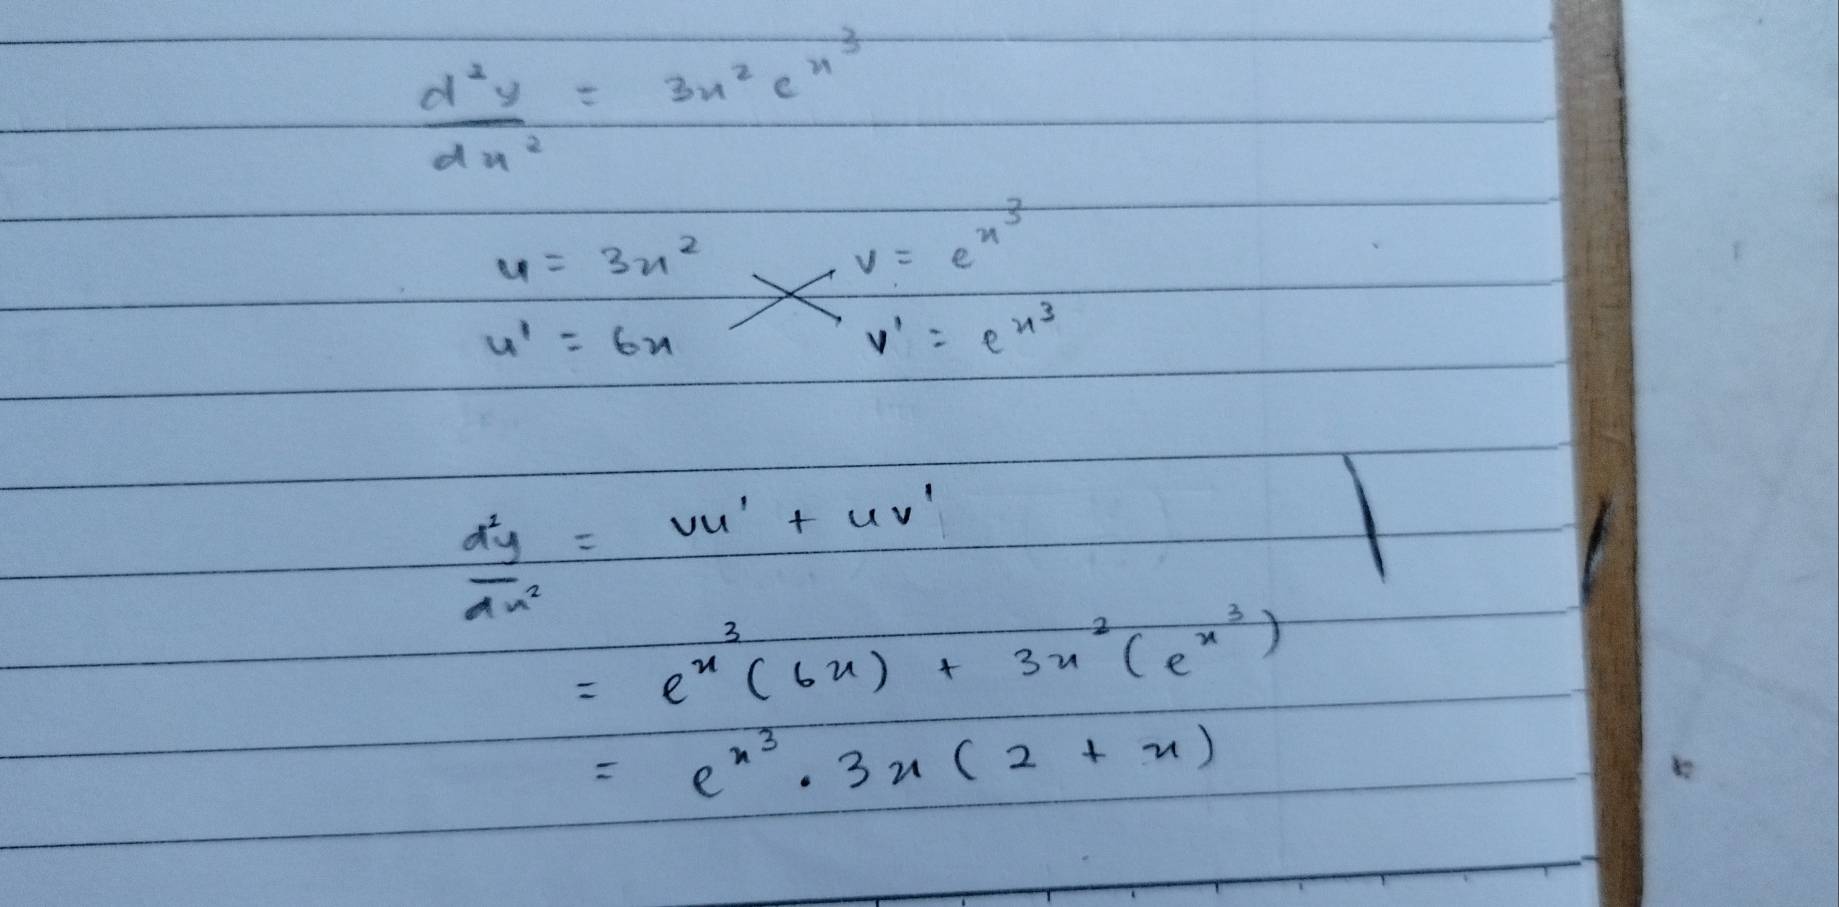 d²y/dx² = 3x² e^x³
u = 3x² v = e^x³
u' = 6x v' = e^x³
d²y/dx² = vu' + uv'
= e^x³ (6x) + 3x² (e^x³)
= e^x³ . 3x (2 + x)